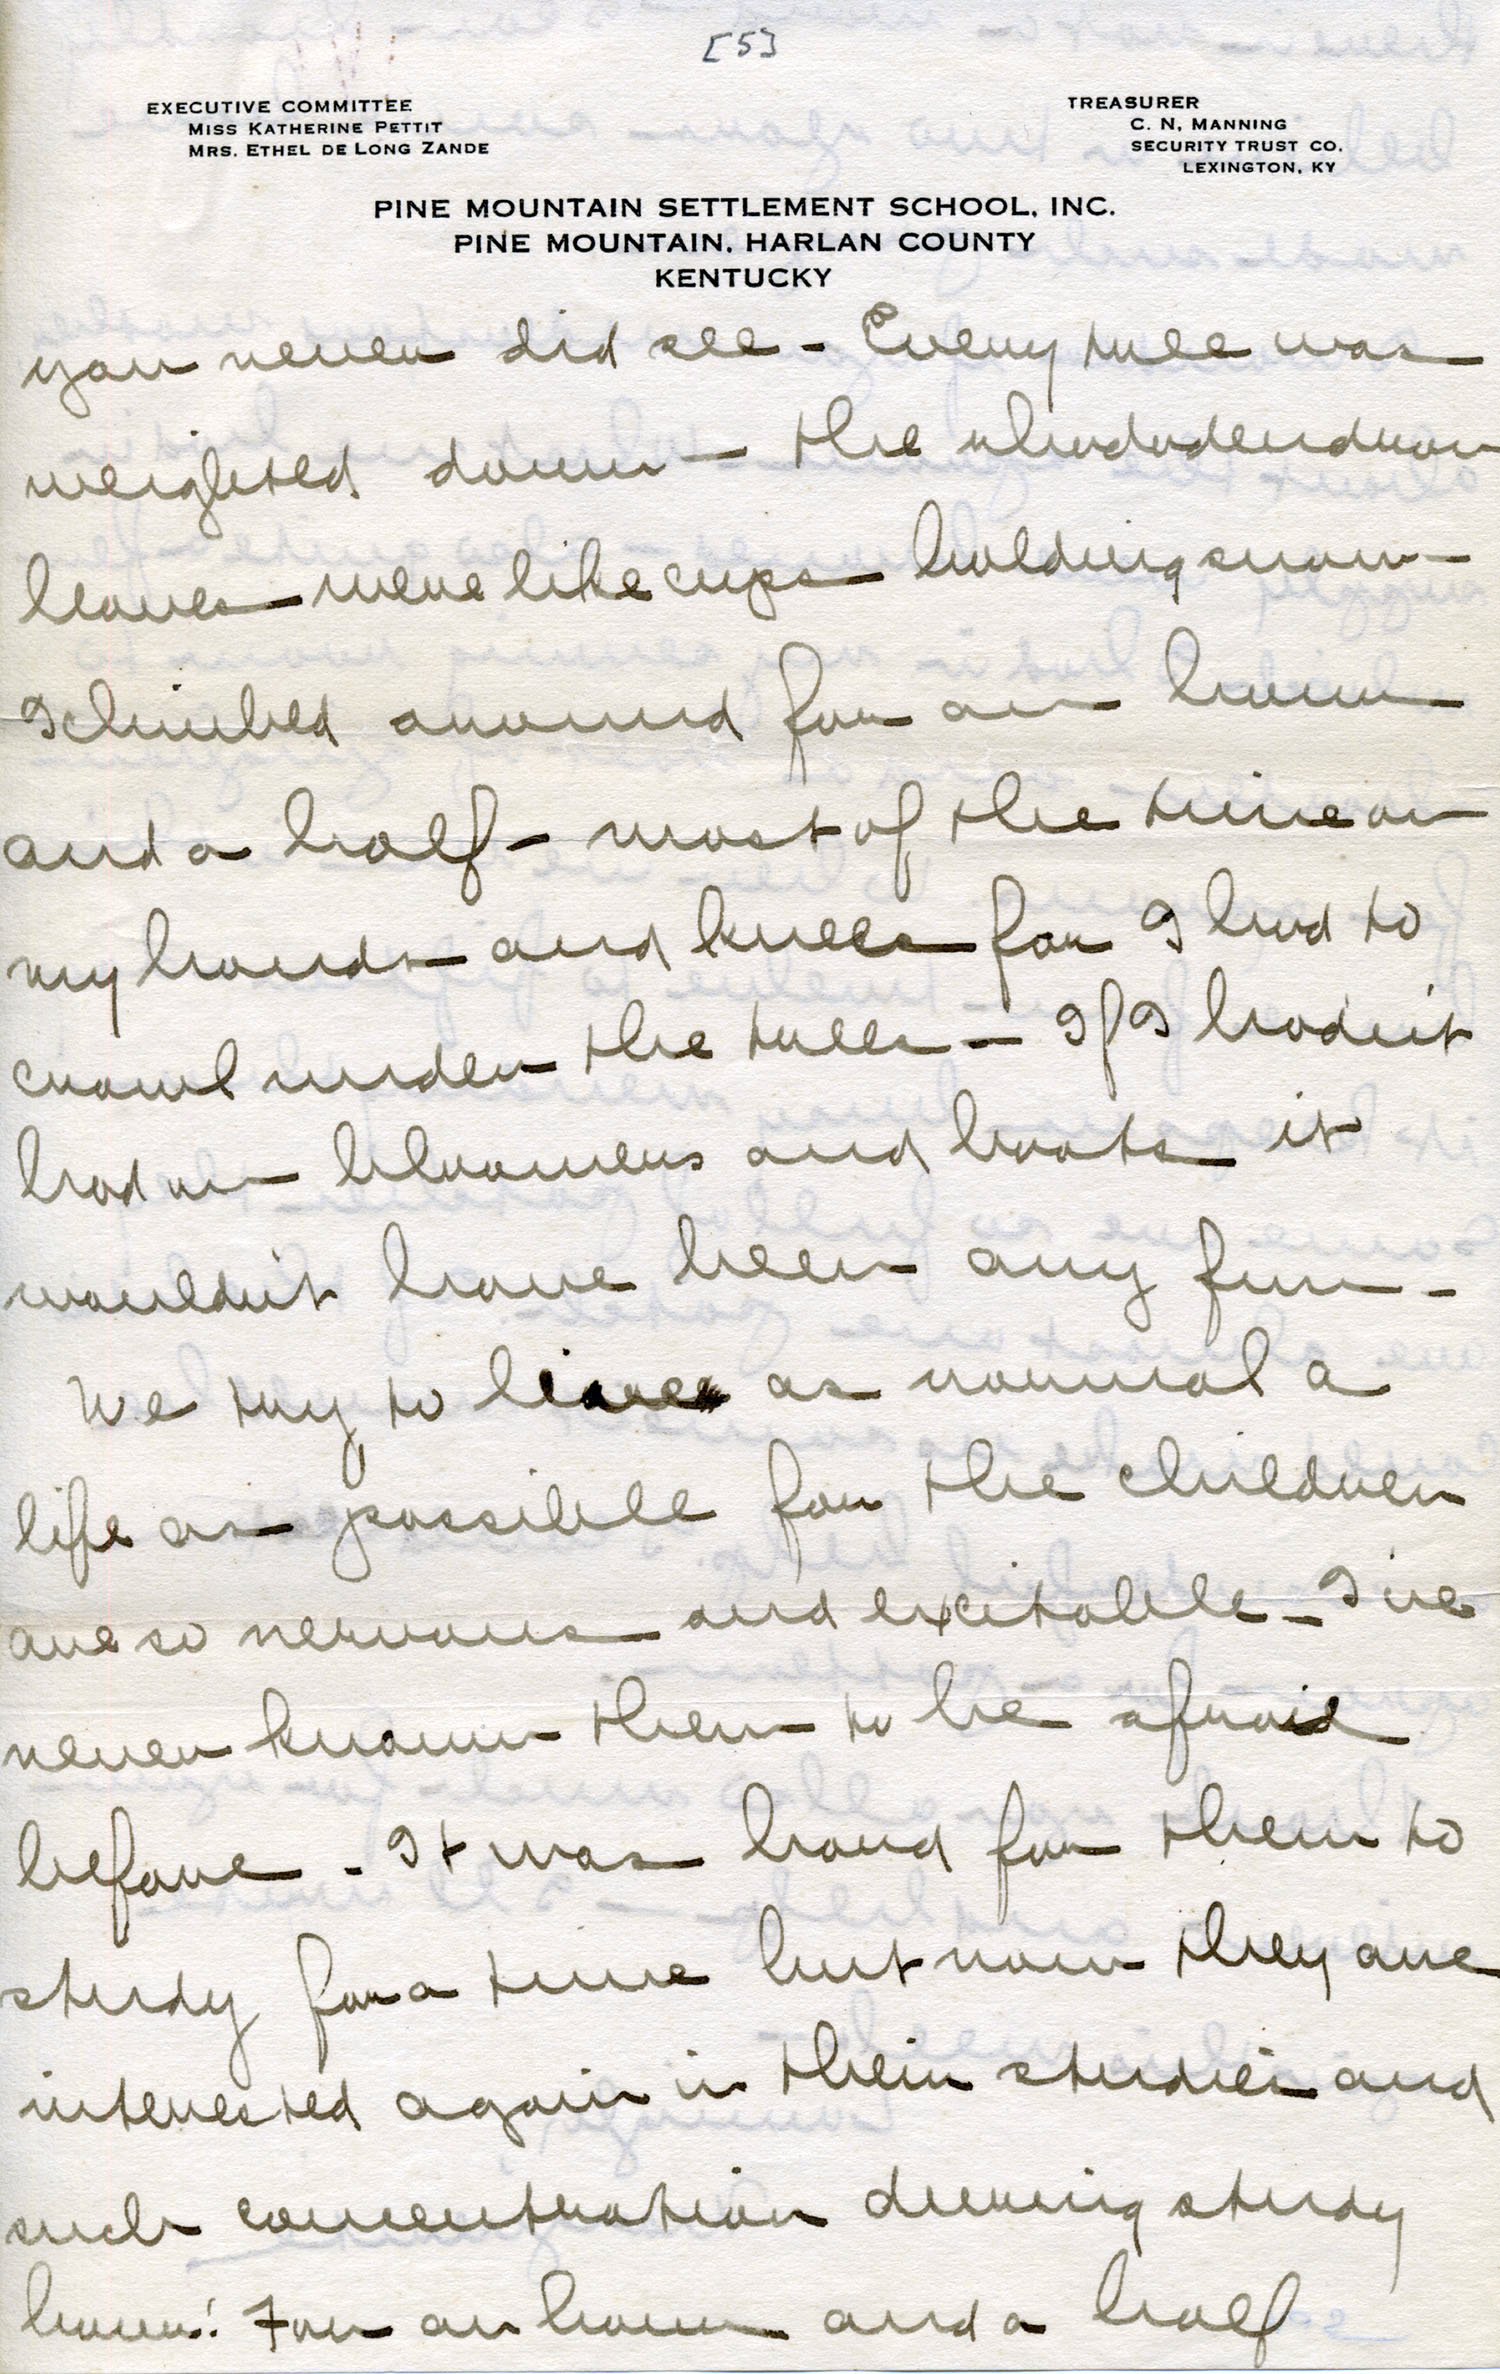 [5]
EXECUTIVE COMMITTEE
MISS KATHERINE PETTIT
MRS. ETHEL DE LONG ZANDE
TREASURER
C. N. MANNING
SECURITY TRUST CO.
LEXINGTON, KY
PINE MOUNTAIN SETTLEMENT SCHOOL, INC.
PINE MOUNTAIN, HARLAN COUNTY
KENTUCKY
you never did see - Every tree was
weighted down - the rhododendron
leaves were like cups holding snow -
I climbed around for an hour
and a half - most of the time on
my hands and knees for I had to
crawl under the trees - If I hadn't
had on bloomers and boots it
wouldn't have been any fun -
We try to live as normal a
life as possible for the children
are so nervous and excitable - I've
never known them to be afraid
before - It was hard for them to
study for a time but now they are
interested again in their studies and
such concentration during study
hour! For an hour and a half